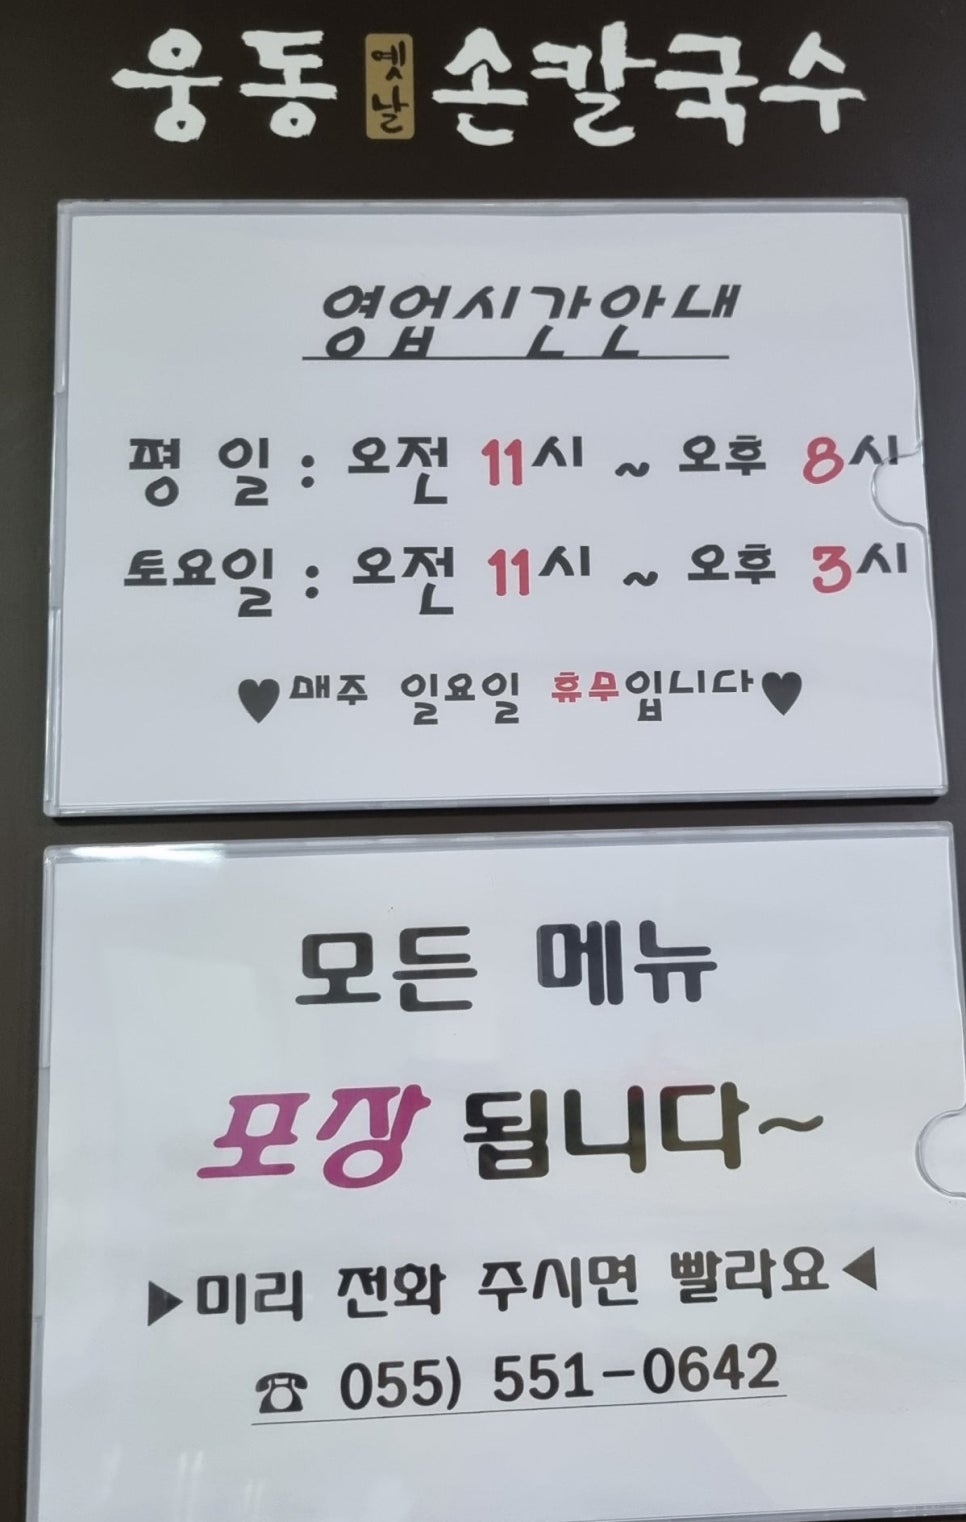 웅동 옛날 손칼국수
영업시간안내
평 일 : 오전 11시 ~ 오후 8시
토요일 : 오전 11시 ~ 오후 3시
♥매주 일요일 휴무입니다♥
모든 메뉴
포장 됩니다~
▶미리 전화 주시면 빨라요◀
☎ 055) 551-0642